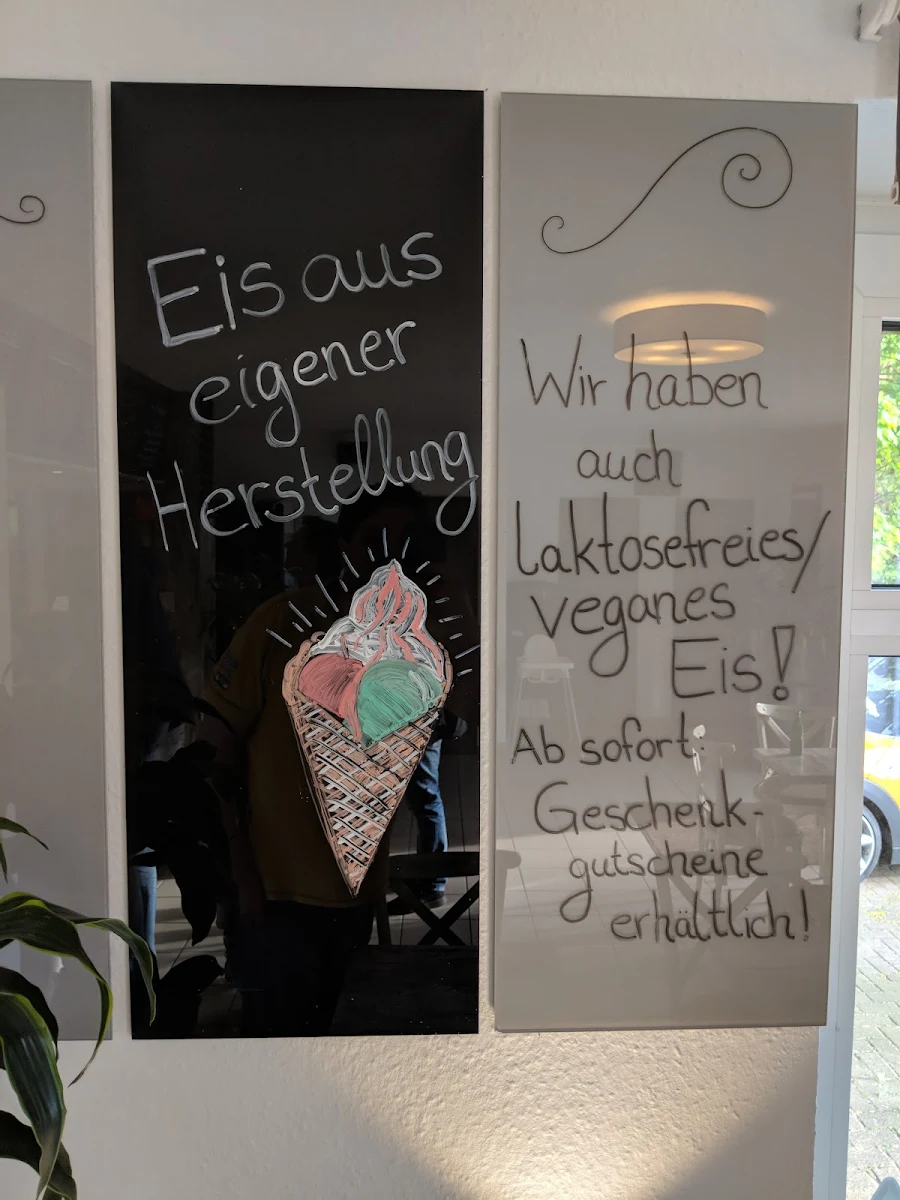 Eis aus
eigener
Herstellung
Wir haben
auch
laktosefreies/
veganes
Eis!
Ab sofort:
Geschenk-
gutscheine
erhältlich!